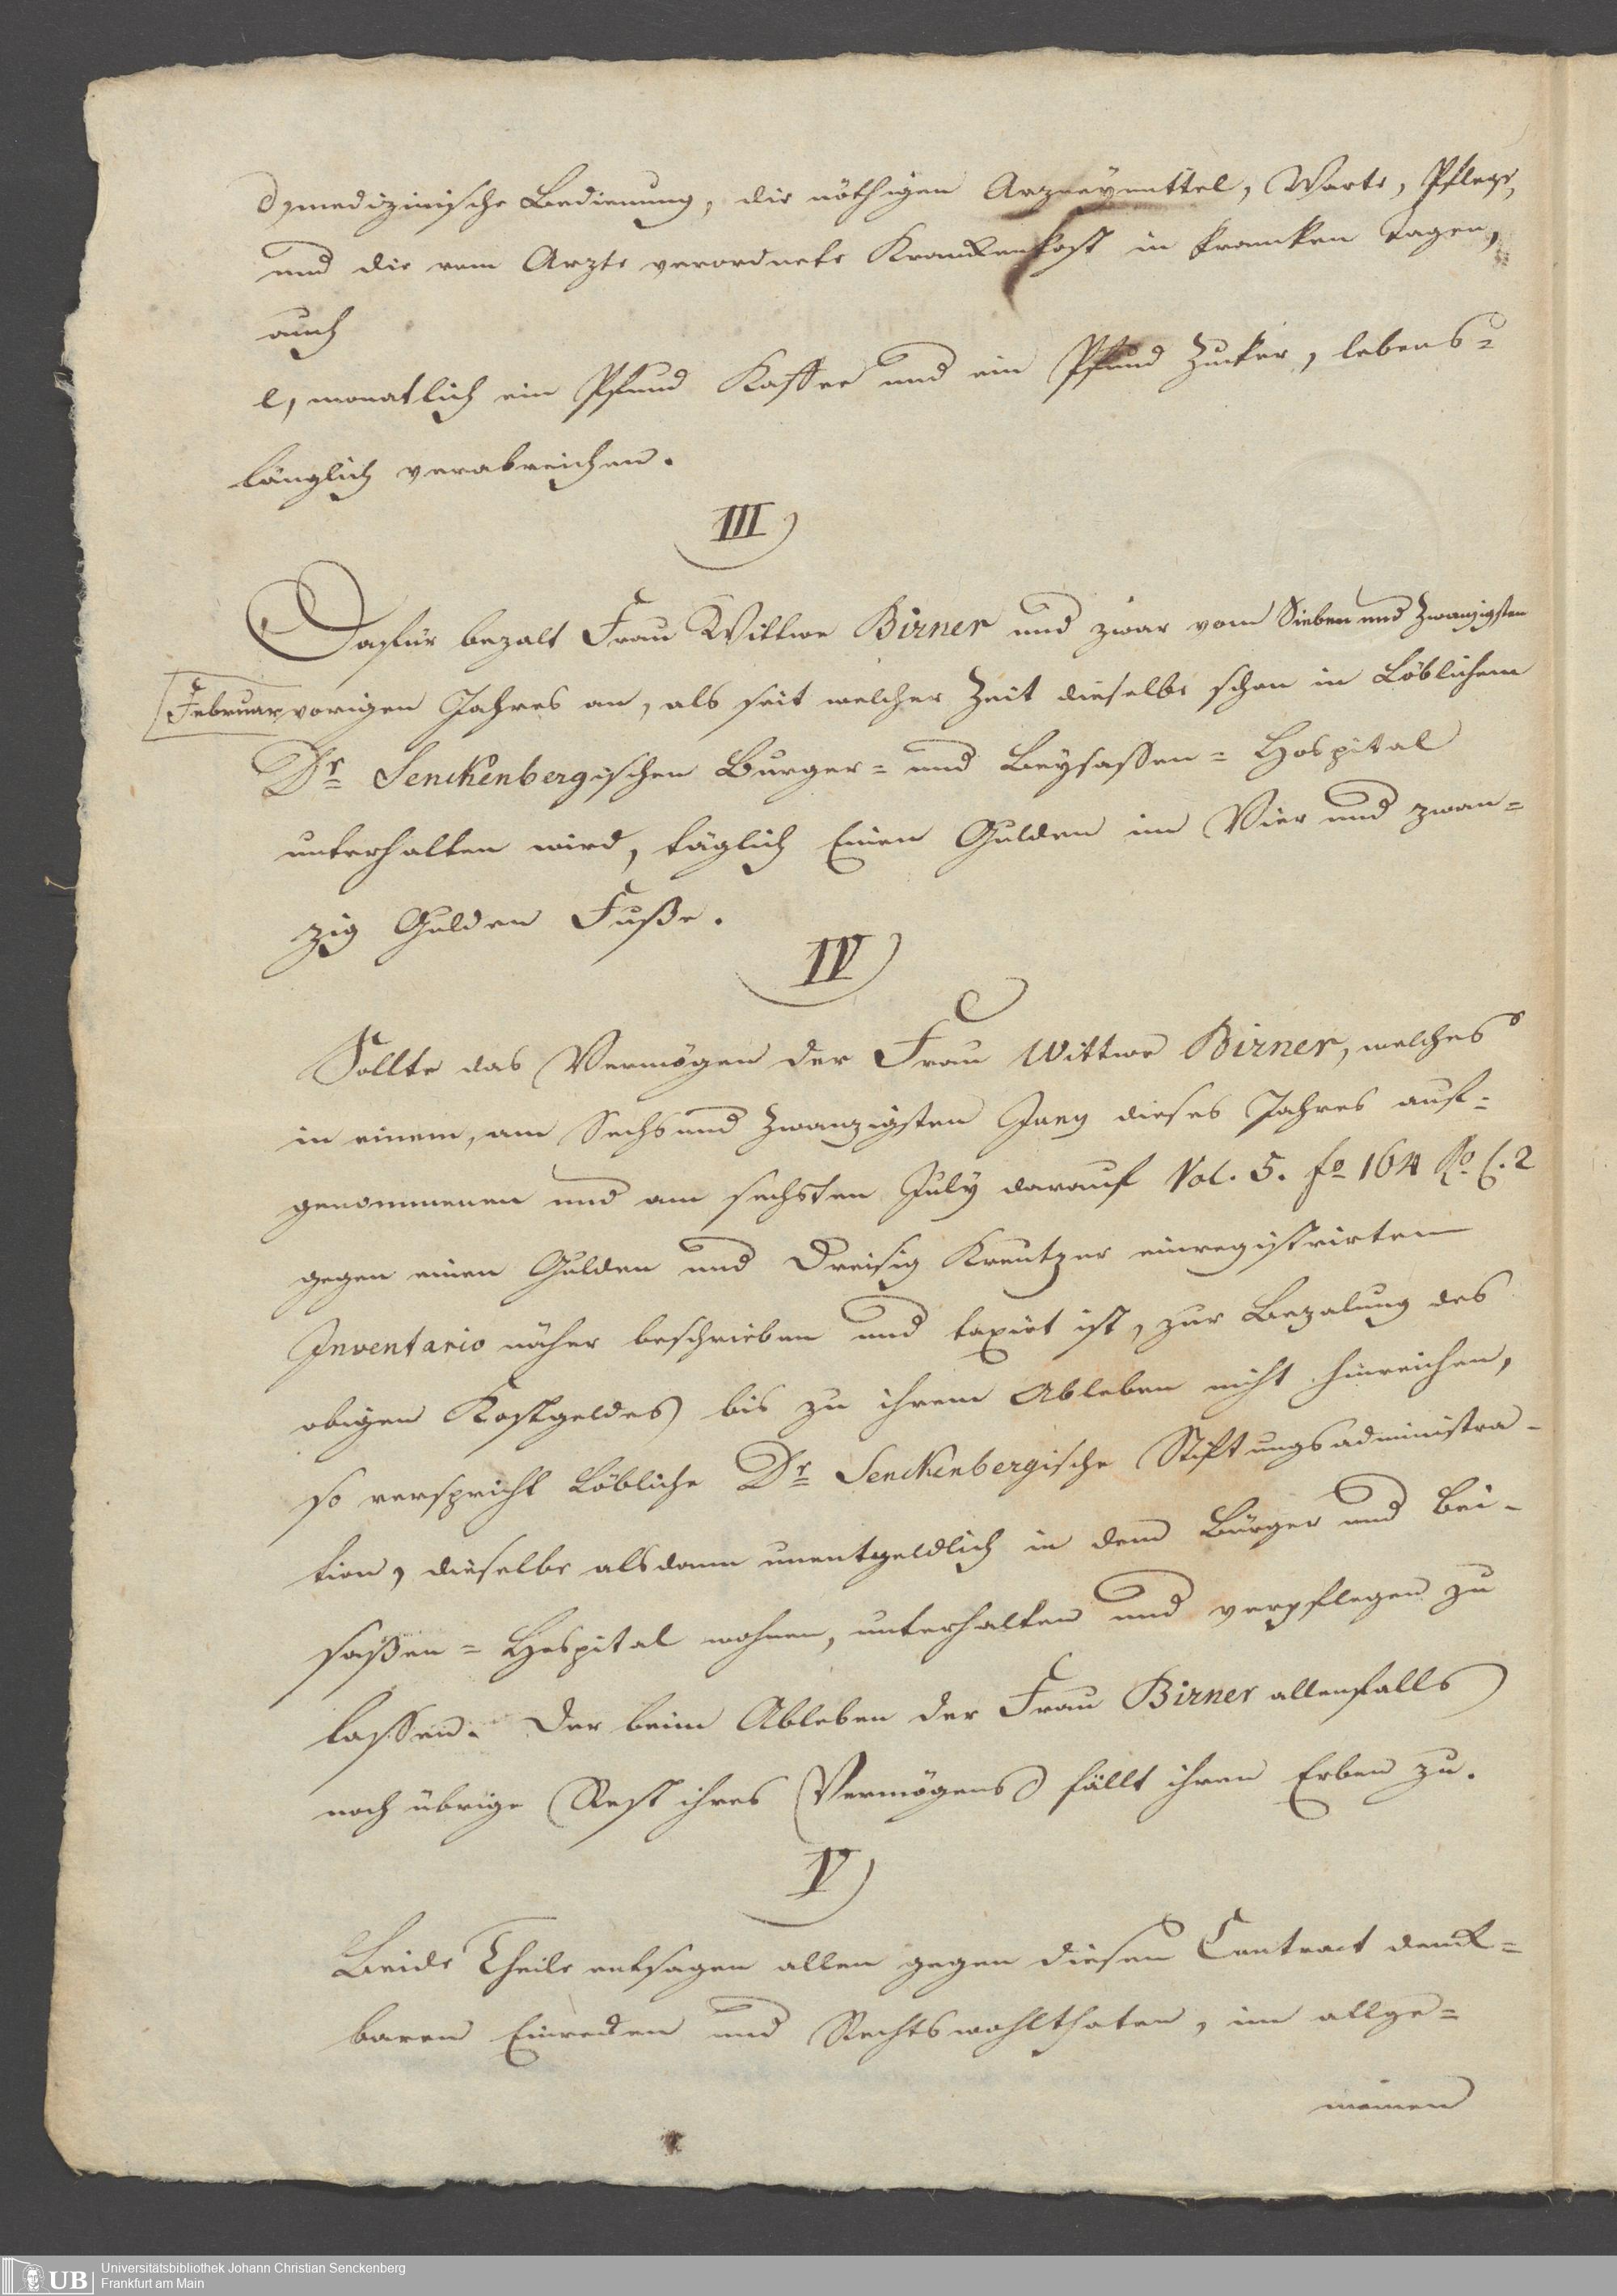 d, medizinische Bedienung, die nöthigen Arzneymittel, Warte, Pflege,
und die vom Arzte verordnete Krankenkost in krancken Tagen,
auch
e, monatlich ein Pfund Kaffee und ein Pfund Zucker, lebens=
länglich verabreichen.
III)
Dafür bezalt Frau Wittwe Birner und zwar vom Sieben und Zwanzigsten
Februar vorigen Jahres an, als seit welcher Zeit dieselbe schon in Löblichem
Dr. Senckenbergischen Burger= und Beysassen=Hospital
unterhalten wird, täglich Einen Gulden im Vier und zwan=
zig Gulden Fuße.
IV)
Sollte das Vermögen der Frau Wittwe Birner, welches
in einem, am Sechs und Zwanzigsten Juny dieses Jahres auf=
genommenen und am sechsten July darauf Vol. 5. fo 164 Ro C. 2
gegen einen Gulden und Dreisig Kreutzer einregistrirten
Inventario näher beschrieben und taxirt ist, zur Bezalung des
obigen Kostgeldes bis zu ihrem Ableben nicht hinreichen,
so verspricht Löbliche Dr. Senckenbergische Stiftungsadministra-
tion, dieselbe alsdann unentgeldlich in dem Bürger und Bei-
saßen=Hospital wohnen, unterhalten und verpflegen zu
lassen. Der beim Ableben der Frau Birner allenfalls
noch übrige Rest ihres Vermögens fällt ihren Erben zu.
V)
Beide Theile entsagen allen gegen diesen Contract denk=
baren Einreden und Rechtswohlthaten, im allge=
meinen
Universitätsbibliothek Johann Christian Senckenberg
UB Frankfurt am Main